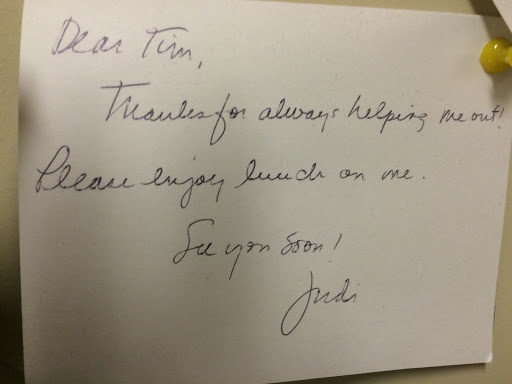 Dear Tim,
Thanks for always helping me out!
Please enjoy lunch on me.
See you soon!
Judi